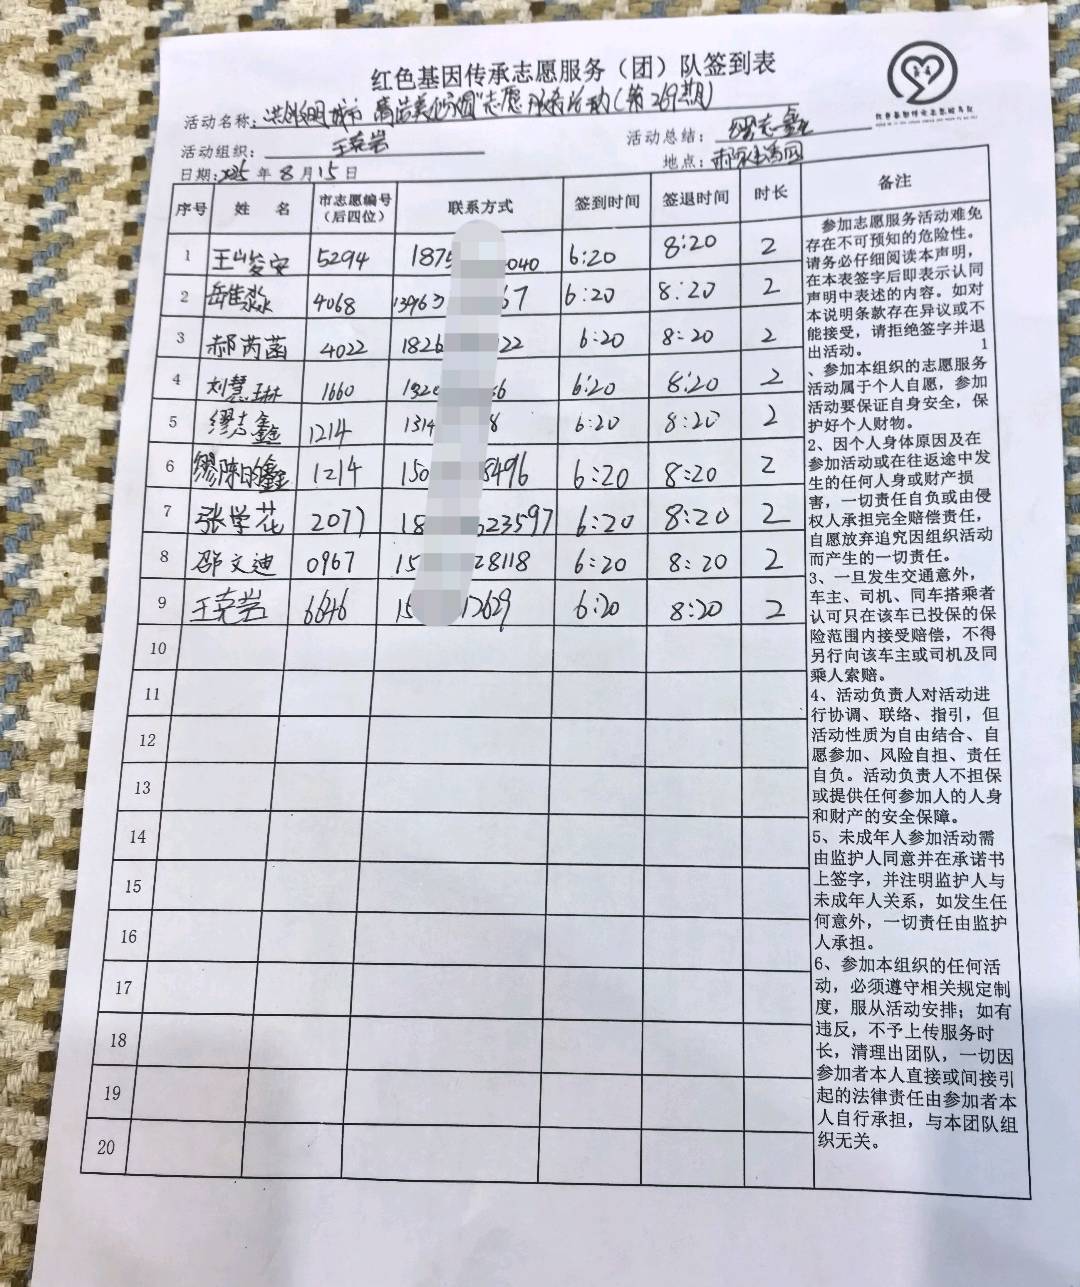 红色基因传承志愿服务（团）队签到表
活动名称：洪 明城市 志愿服务活动（第269期）
活动组织：王克岩
活动总结：缪志鑫
日期：2025年8月15日
地点：
序号 姓名 市志愿编号（后四位） 联系方式 签到时间 签退时间 时长 备注
1 王峻安 5294 187 040 6:20 8:20 2
2 淼 4068 13963 7 6:20 8:20 2
3 郝芮菡 4022 1826 22 6:20 8:20 2
4 刘慧琳 1660 6 6:20 8:20 2
5 缪志鑫 1214 1314 8 6:20 8:20 2
6 缪陈明鑫 1214 150 8496 6:20 8:20 2
7 张学花 2077 18 23597 6:20 8:20 2
8 邵文迪 0967 15 28118 6:20 8:20 2
9 王克岩 6646 15 12629 6:20 8:20 2
10
11
12
13
14
15
16
17
18
19
20
参加志愿服务活动难免
存在不可预知的危险性。
请务必仔细阅读本声明，
在本表签字后即表示认同
声明中表述的内容。如对
本说明条款存在异议或不
能接受，请拒绝签字并退
出活动。 1
、参加本组织的志愿服务
活动属于个人自愿，参加
活动要保证自身安全，保
护好个人财物。
2、因个人身体原因及在
参加活动或在往返途中发
生的任何人身或财产损
害，一切责任自负或由侵
权人承担完全赔偿责任，
自愿放弃追究因组织活动
而产生的一切责任。
3、一旦发生交通意外，
车主、司机、同车搭乘者
认可只在该车已投保的保
险范围内接受赔偿，不得
另行向该车主或司机及同
乘人索赔。
4、活动负责人对活动进
行协调、联络、指引，但
活动性质为自由结合、自
愿参加、风险自担、责任
自负。活动负责人不担保
或提供任何参加人的人身
和财产的安全保障。
5、未成年人参加活动需
由监护人同意并在承诺书
上签字，并注明监护人与
未成年人关系，如发生任
何意外，一切责任由监护
人承担。
6、参加本组织的任何活
动，必须遵守相关规定制
度，服从活动安排；如有
违反，不予上传服务时
长，清理出团队，一切因
参加者本人直接或间接引
起的法律责任由参加者本
人自行承担，与本团队组
织无关。